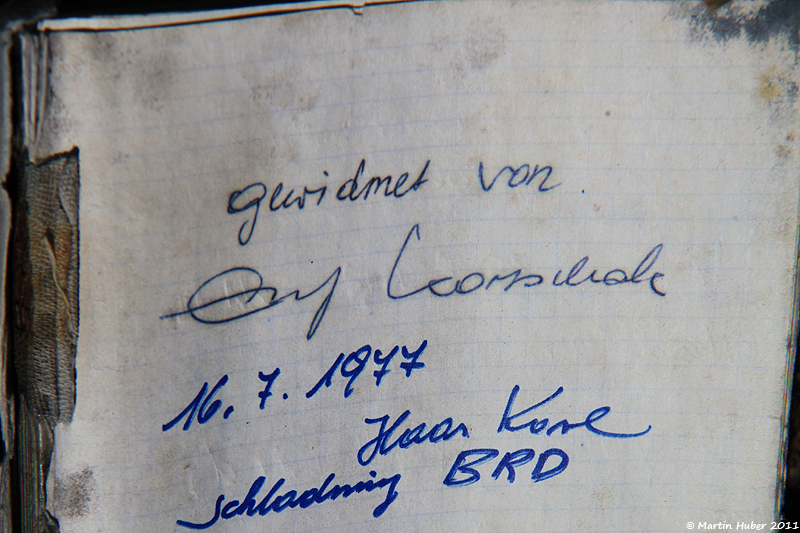 gewidmet von
16. 7. 1977
Haas Karl
schladming BRD
© Martin Huber 2011